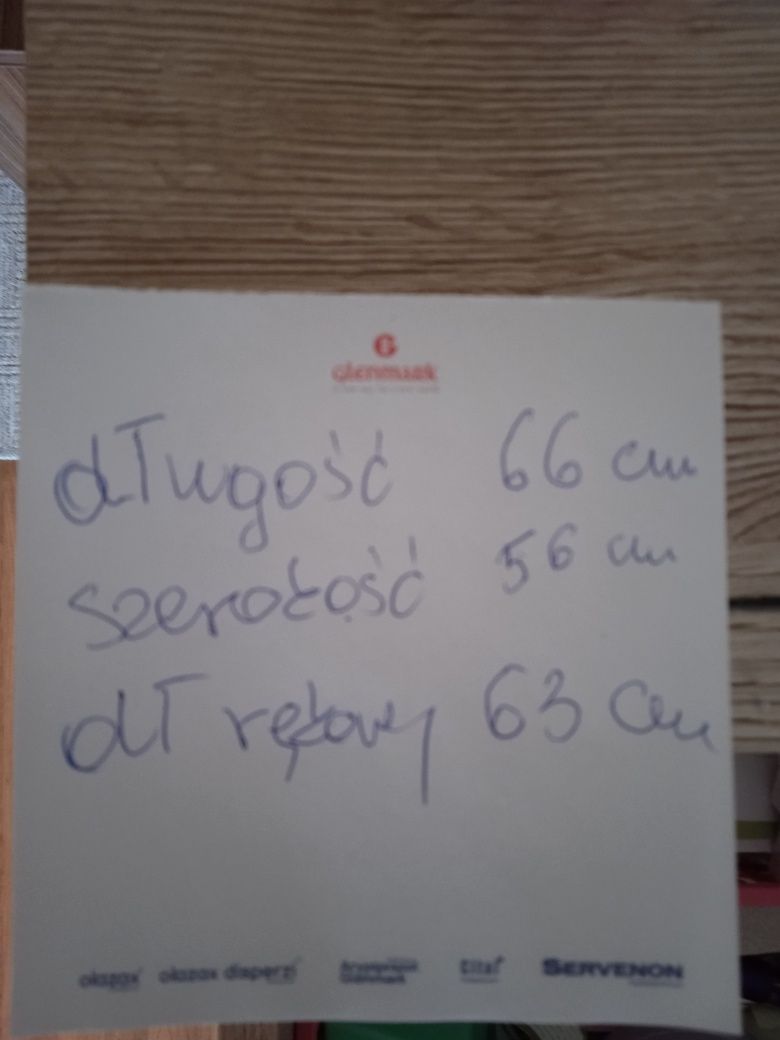 G
Glenmark
długość 66 cm
szerokość 56 cm
dł rękawy 63 cm
olazax olazax disperzi Glenmark SERVENON